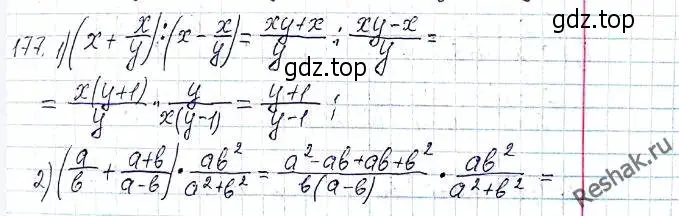 177. 1) (x + x/y) : (x - x/y) = (xy+x)/y : (xy-x)/y =
gdz.top
= x(y+1)/y · y/x(y-1) = (y+1)/(y-1) ;
gdz.top
2) (a/b + (a+b)/(a-b)) · ab²/(a²+b²) = (a²-ab+ab+b²)/b(a-b) · ab²/(a²+b²) =
Reshak.ru